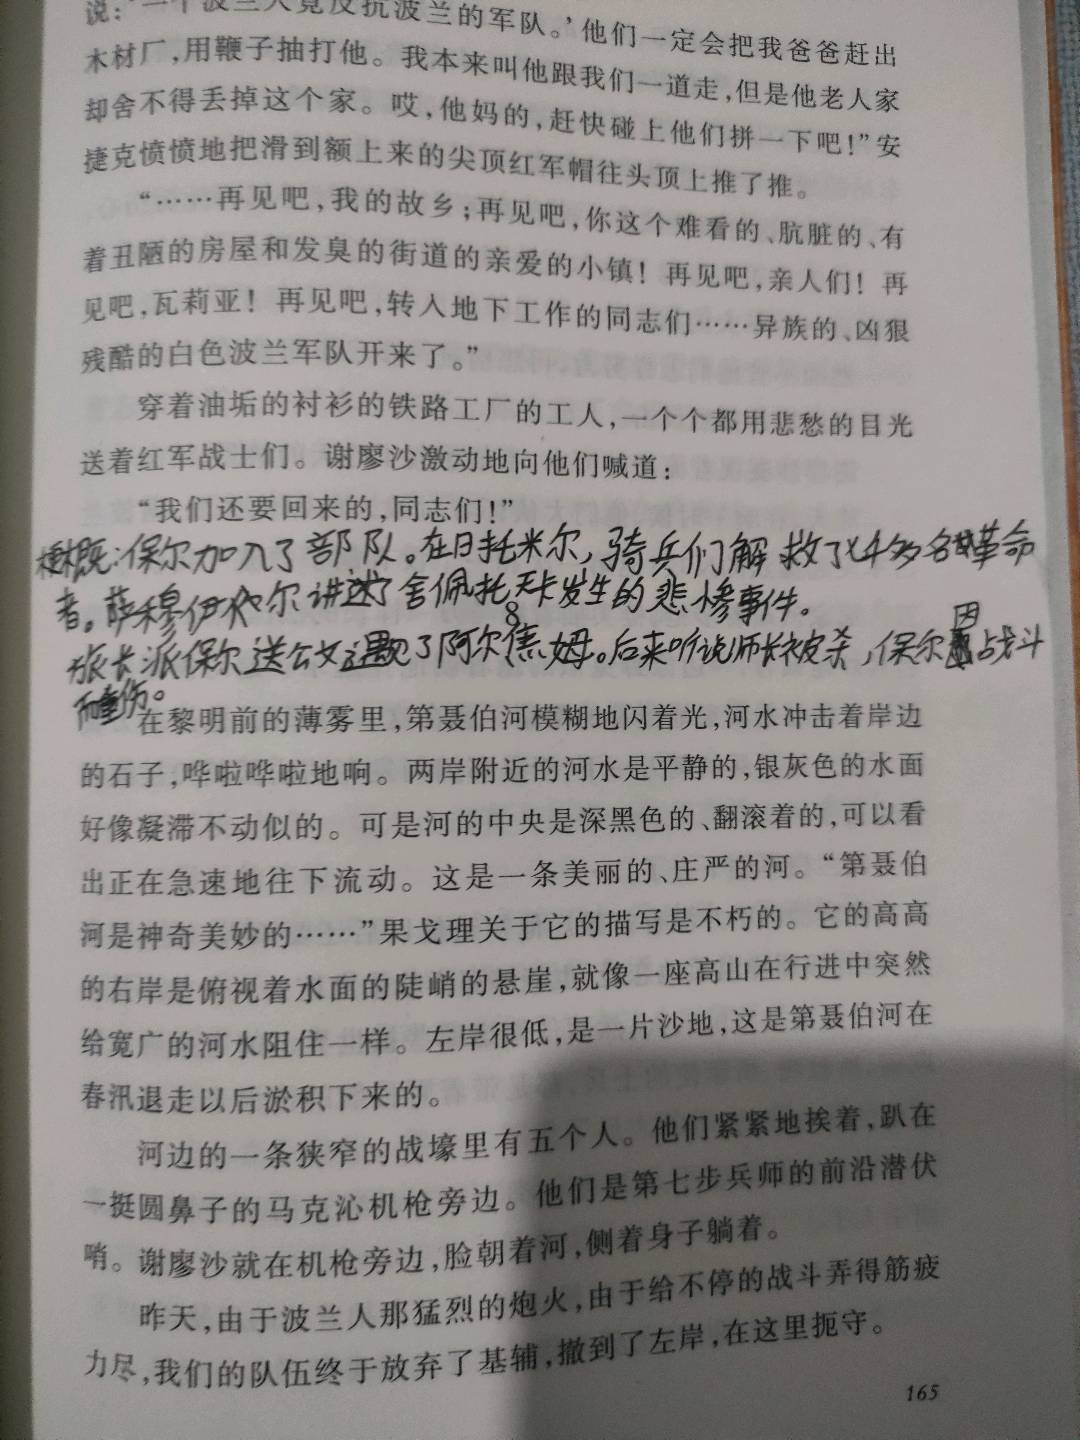 说：‘一个波兰人竟反抗波兰的军队。’他们一定会把我爸爸赶出
木材厂，用鞭子抽打他。我本来叫他跟我们一道走，但是他老人家
却舍不得丢掉这个家。哎，他妈的，赶快碰上他们拼一下吧！”安
捷克愤愤地把滑到额上来的尖顶红军帽往头顶上推了推。
“……再见吧，我的故乡；再见吧，你这个难看的、肮脏的、有
着丑陋的房屋和发臭的街道的亲爱的小镇！再见吧，亲人们！再
见吧，瓦莉亚！再见吧，转入地下工作的同志们……异族的、凶狠
残酷的白色波兰军队开来了。”
穿着油垢的衬衫的铁路工厂的工人，一个个都用悲愁的目光
送着红军战士们。谢廖沙激动地向他们喊道：
“我们还要回来的，同志们！”
概：保尔加入了部队。在日托米尔，骑兵们解救了多名革命
者。萨穆伊尔讲述了舍佩托夫卡发生的悲惨事件。
8
旅长派保尔送公文遇见了阿尔焦姆。后来听说师长被杀，保尔因战斗
而重伤。
在黎明前的薄雾里，第聂伯河模糊地闪着光，河水冲击着岸边
的石子，哗啦哗啦地响。两岸附近的河水是平静的，银灰色的水面
好像凝滞不动似的。可是河的中央是深黑色的、翻滚着的，可以看
出正在急速地往下流动。这是一条美丽的、庄严的河。“第聂伯
河是神奇美妙的……”果戈理关于它的描写是不朽的。它的高高
的右岸是俯视着水面的陡峭的悬崖，就像一座高山在行进中突然
给宽广的河水阻住一样。左岸很低，是一片沙地，这是第聂伯河在
春汛退走以后淤积下来的。
河边的一条狭窄的战壕里有五个人。他们紧紧地挨着，趴在
一挺圆鼻子的马克沁机枪旁边。他们是第七步兵师的前沿潜伏
哨。谢廖沙就在机枪旁边，脸朝着河，侧着身子躺着。
昨天，由于波兰人那猛烈的炮火，由于给不停的战斗弄得筋疲
力尽，我们的队伍终于放弃了基辅，撤到了左岸，在这里扼守。
165